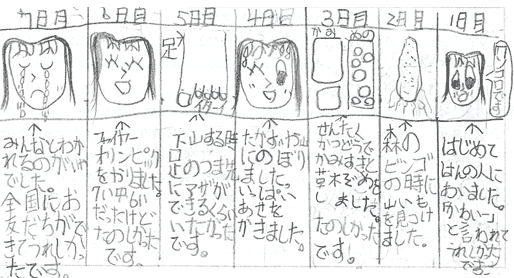 1日目
はじめて
はんの人に
あいました。
「かわいー」
と言われて
うれしかった
です
2日目
森の
ビンゴの時に
を見つけ
ました。
3日目
かみ
ぬの
せんたく
かつどうで
かみすきと
草木ぞめを
しました。
たのしかった
です。
4日目
にのぼり
ました。
いっぱい
あせを
かきました。
5日目
足
イター
下山する時
足のつま先
にアザが
できるくらい
いたかった
です。
6日目
オリンピック
7い中6い
だったけど
たのしかった
です。
7日目
みんなとわか
れるのがいや
でした。
全国にお
友だちがで
きてうれしかっ
たです。